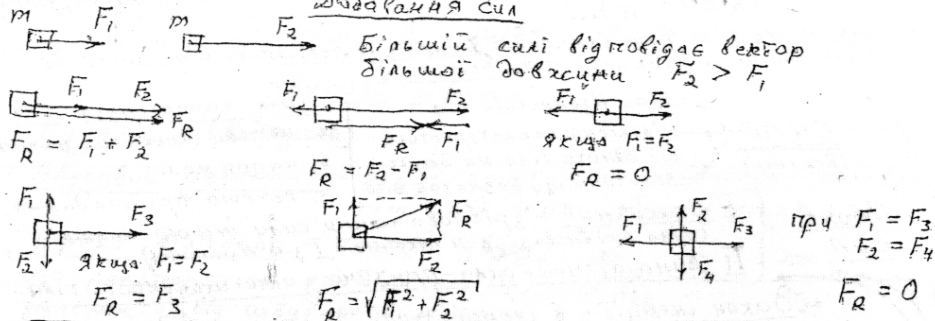 Додавання сил
m F₁ m F₂
Більшій силі відповідає вектор
більшої довжини F₂ > F₁
F₁ F₂ F_R
F_R = F₁ + F₂
F₁ F₂ F_R F₁
F_R = F₂ - F₁
F₁ F₂
якщо F₁ = F₂
F_R = 0
F₁ F₃ F₂
якщо F₁ = F₂
F_R = F₃
F₁ F_R F₂
F_R = √F₁² + F₂²
F₂ F₁ F₃ F₄
при F₁ = F₃
F₂ = F₄
F_R = 0